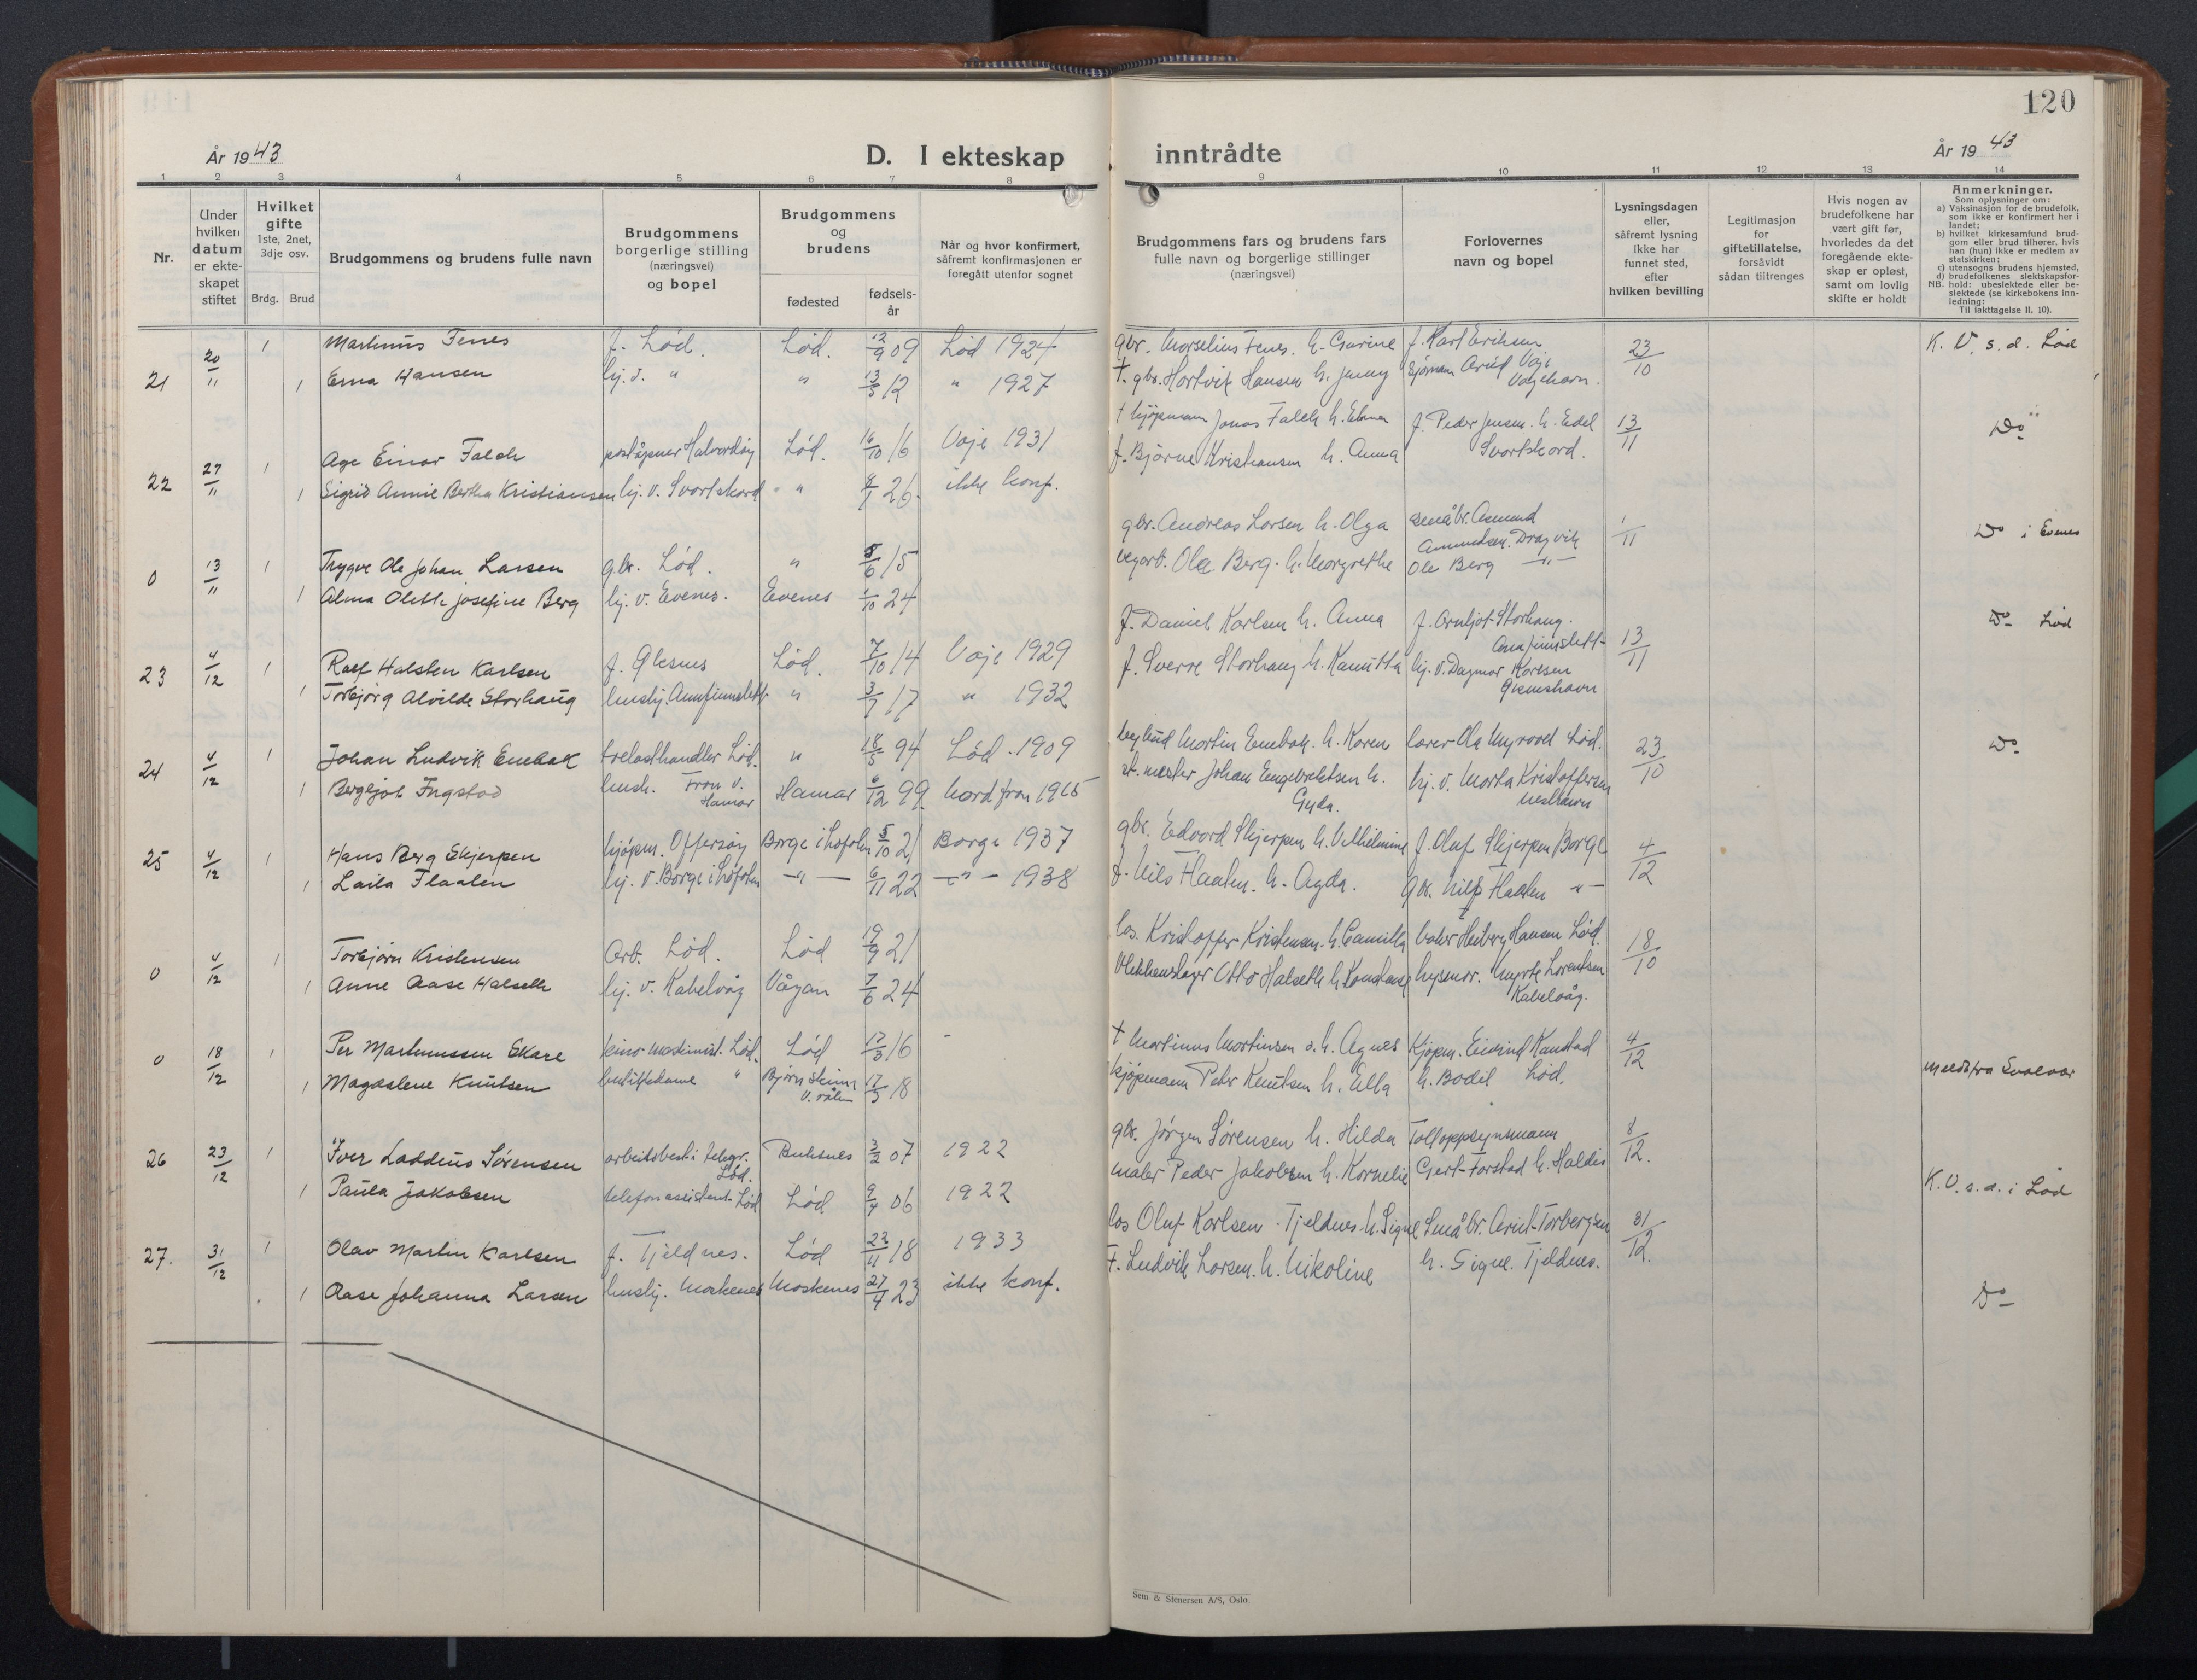 120
År 1943
D. I ekteskap inntrådte
År 1943
1 2 3 4 5 6 7 8 9 10 11 12 13 14
Nr.
Under hvilken datum er ekte-skapet stiftet
Hvilket gifte
1ste, 2net, 3dje osv.
Brdg. Brud
Brudgommens og brudens fulle navn
Brudgommens borgerlige stilling (næringsvei) og bopel
Brudgommens og brudens
fødested
fødsels-år
Når og hvor konfirmert, såfremt konfirmasjonen er foregått utenfor sognet
Brudgommens fars og brudens fars fulle navn og borgerlige stillinger (næringsvei)
Forlovernes navn og bopel
Lysningsdagen eller, såfremt lysning ikke har funnet sted, efter hvilken bevilling
Legitimasjon for giftetillatelse, forsåvidt sådan tiltrenges
Hvis nogen av brudefolkene har vært gift før, hvorledes da det foregående ekte-skap er opløst, samt om lovlig skifte er holdt
Anmerkninger.
Som oplysninger om:
a) Vaksinasjon for de brudefolk, som ikke er konfirmert her i landet;
b) hvilket kirkesamfund brud-gom eller brud tilhører, hvis han (hun) ikke er medlem av statskirken;
c) utensogns brudens hjemsted,
d) brudefolkenes slektskapsfor-hold: ubeslektede eller be-slektede (se kirkebokens inn-ledning:
NB.
Til iakttagelse II. 10).
21 20/11 1 Martinus Fenes f. Lød. Lød. 12/9 09 Lød 1924 gbr. Marselius Fenes. h. f. Karl Eriksen 23/10 K. V. s. d. Lød
1 Erna Hansen hj.d. " " 13/5 12 " 1927 †. gbr. Hartvik Hansen h. Jenny sjømann Arvid Voje Vojehavn.
22 27/11 1 Age Einar Falch poståpner Lød. 16/10 16 Voje 1931 † kjøpmann Jonas Falch h. f. Peder Jensen. h. Edel 13/11 Do
1 Sigrid Annie Bertha Kristiansen hj. v. Svortskord " 8/1 26. ikke konf. f. Bjarne Kristiansen h. Anna Svortskord.
0 13/11 1 Trygve Ole Johan Larsen gbr. Lød. " 5/6 15 gbr. Andreas Larsen h. Olga småbr. Asmund Amundsen. Dragvik 1/11 Do i Evenes
1 Alma Oleth Josefine Berg hj. v. Evenes. Evenes 1/10 24 vegarb. Ole Berg. h. Margrethe Ole Berg —"—
23 4/12 1 Ralf Halsten Karlsen f. Glesnes Lød. 7/10 14 Voje 1929 f. Daniel Karlsen h. Anna f. Arnljot Storhaug. 13/11 Do Lød
1 Torbjørg Alvilde Storhaug hushj. " 3/7 17 " 1932 f. Sverre Storhaug h. hj. v. Dagmar Karlsen
24 4/12 1 Johan Ludvik Enebak trelasthandler Lød. " 18/5 94 Lød. 1909 Martin Enebak. h. Karen lærer Ola Myrvoll Lød. 23/10 Do
1 Bergljot Fugstad hush. Fron v. Hamar Hamar 6/12 99. Nord fron 1915 st. mester Johan Engebrektsen h. Gyda. hj. v. Marta Kristoffersen
25 4/12 1 Hans Berg Skjerpen kjøpm. Offersøy Borge i Lofoten 5/10 21 Borge 1937 gbr. Edvard Skjerpen h. Vilhelmine f. Oluf Skjerpen Borge 4/12
1 Laila Flaaten hj. v. Borge i Lofoten —"— 6/11 22 —"— 1938 f. Nils Flaaten. h. Agda. gbr. Nils Flaaten —"—
0 4/12 1 Torbjørn Kristensen Arb. Lød. Lød 19/9 21 los. Kristoffer Kristensen. h. Camilla baker Heiberg Hansen Lød. 18/10
1 Anne Aase Halseth hj. v. Kabelvåg Vågan 7/6 24 Blikkenslager Otto Halseth h. Konstanse Lorentsen Kabelvåg.
0 18/12 1 Per Martinussen Skare kino-maskinist. Lød. Lød 17/3 16 † Martinus Martinsen o. h. Agnes Kjøpm. Eivind Kanstad 4/12 meldt fra Svolvær
1 Magdalene Knutsen butikkdame " Bjørnskinn V.rålen 17/5 18 kjøpmann Peter Knutsen h. Ella h. Bodil Lød.
26 23/12 1 Iver Laddeus Sørensen arbeidsbest. i telegr. Lød. Buksnes 3/2 07 1922 gbr. Jørgen Sørensen h. Hilda Tolloppsynsmann 8/12. K.V.s.d. i Lød
1 Paula Jakobsen telefonassistent Lød Lød 9/4 06 1922 maler Peder Jakobsen h. Kornelie Gert Forstad h. Haldis
27. 31/12 1 Olav Martin Karlsen f. Tjeldnes. Lød 22/11 18 1933 los Oluf Karlsen. Tjeldnes. h. Signe Småbr. Arnt Torbergsen 31/12.
1 Aase Johanna Larsen hushj. Moskenes Moskenes 27/4 23 ikke konf. F. Ludvik Larsen. h. Nikoline h. Signe. Tjeldnes. Do
Sem & Stenersen A/S, Oslo.